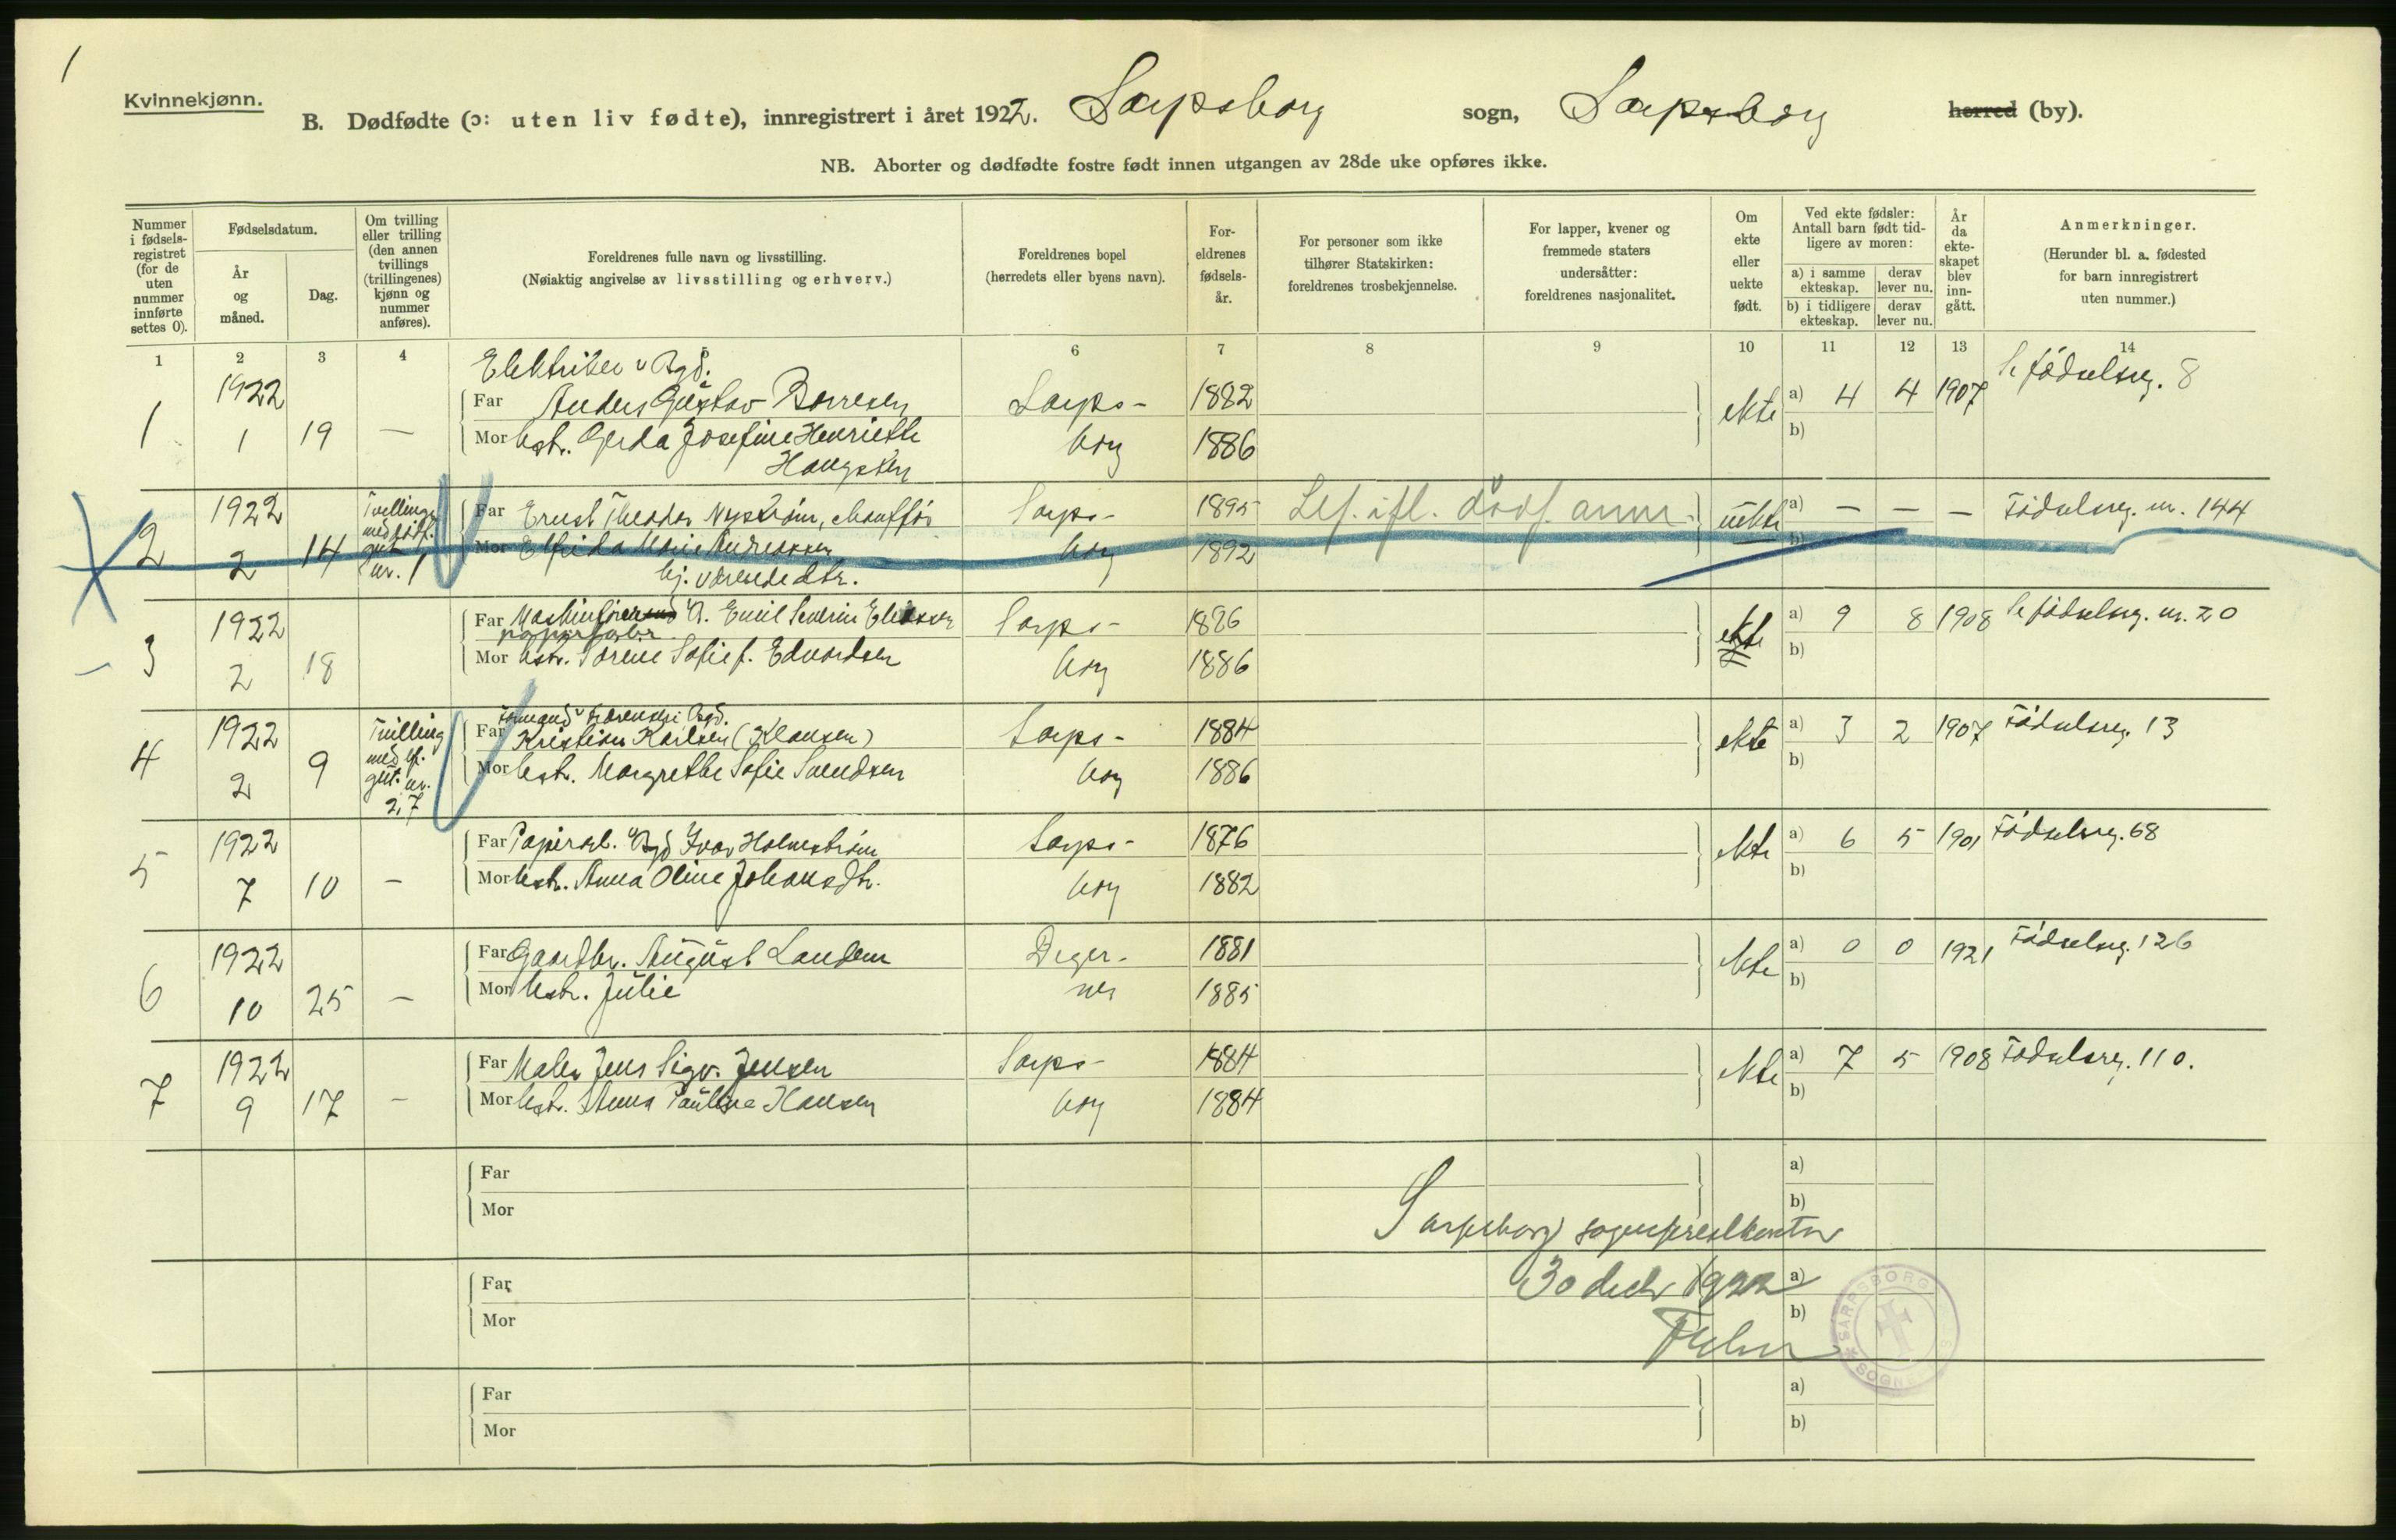 1
Kvinnekjønn.
B. Dødfødte (ɔ: uten liv fødte), innregistrert i året 1922. Sarpsborg sogn, Sarpsborg herred (by).
NB. Aborter og dødfødte fostre født innen utgangen av 28de uke opføres ikke.
Nummer i fødselsregistret (for de uten nummer innførte settes 0).
Fødselsdatum.
År og måned.
Dag.
Om tvilling eller trilling (den annen tvillings (trillingenes) kjønn og nummer anføres).
Foreldrenes fulle navn og livsstilling.
(Nøiaktig angivelse av livsstilling og erhverv.)
Foreldrenes bopel
(herredets eller byens navn).
Foreldrenes fødselsår.
For personer som ikke tilhører Statskirken: foreldrenes trosbekjennelse.
For lapper, kvener og fremmede staters undersåtter: foreldrenes nasjonalitet.
Om ekte eller uekte født.
Ved ekte fødsler:
Antall barn født tidligere av moren:
a) i samme ekteskap.
derav lever nu.
b) i tidligere ekteskap.
derav lever nu.
År da ekteskapet blev inngått.
Anmerkninger.
(Herunder bl. a. fødested for barn innregistrert uten nummer.)
1 2 3 4 6 7 8 9 10 11 12 13 14
Elektriker
1 1922 1 19 —
Far Anders Gustav Borresen Sarps- 1882 ekte a) 4 4 1907 fødselsreg. 8
Mor Hstr. Gerda Josefine Henriette borg 1886 b)
Haugsten
2 1922 2 14 Tvilling med dødf. gut nr. 1
Far Ernst Theodor Nystrøm, chauffør Sarps- 1895 uekte a) — — — Fødselsreg. nr. 144
Mor Elfrida Marie Andreassen borg 1892 b)
hj. værende dtr.
3 1922 2 18
Far Maskinfører Emil Severin Sarps- ekte a) 9 8 1908 fødselsreg. nr. 20
Mor Hstr. Sofie f. Edvardsen borg 1886 b)
4 1922 2 9 Tvilling med lf. gut. nr. 27
Far Kristian Karlsen (Klausen) Sarps- 1884 ekte a) 3 2 1907 Fødselsreg. 13
Mor Hstr. Margrethe Sofie Svendsen borg 1886 b)
5 1922 7 10 —
Far Ivar Holmstrøm Sarps- 1876 ekte a) 6 5 1901 Fødselsreg. 68
Mor Hstr. Anna Oline Johansdtr. borg 1882 b)
6 1922 10 25 —
Far Gaardbr. August Landem Deger- 1881 ekte a) 0 0 1921 Fødselsreg. 126
Mor Hstr. Julie nes 1885 b)
7 1922 9 17 —
Far Maler Jens Sigv. Jensen Sarps- 1884 ekte a) 7 5 1908 Fødselsreg. 110.
Mor Hstr. Anna Pauline Hansen borg 1884 b)
Far a)
Mor b)
Sarpsborg sogneprestkontor
Far a)
30 decbr 1922
Mor b)
Far a)
Mor b)
SARPSBORG